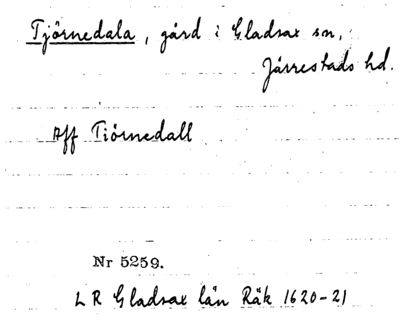 Tjörnedala, gård i Gladsax sn,
Järrestads hd.
Aff Tiörnedall
Nr 5259.
L R Gladsax län Räk 1620-21